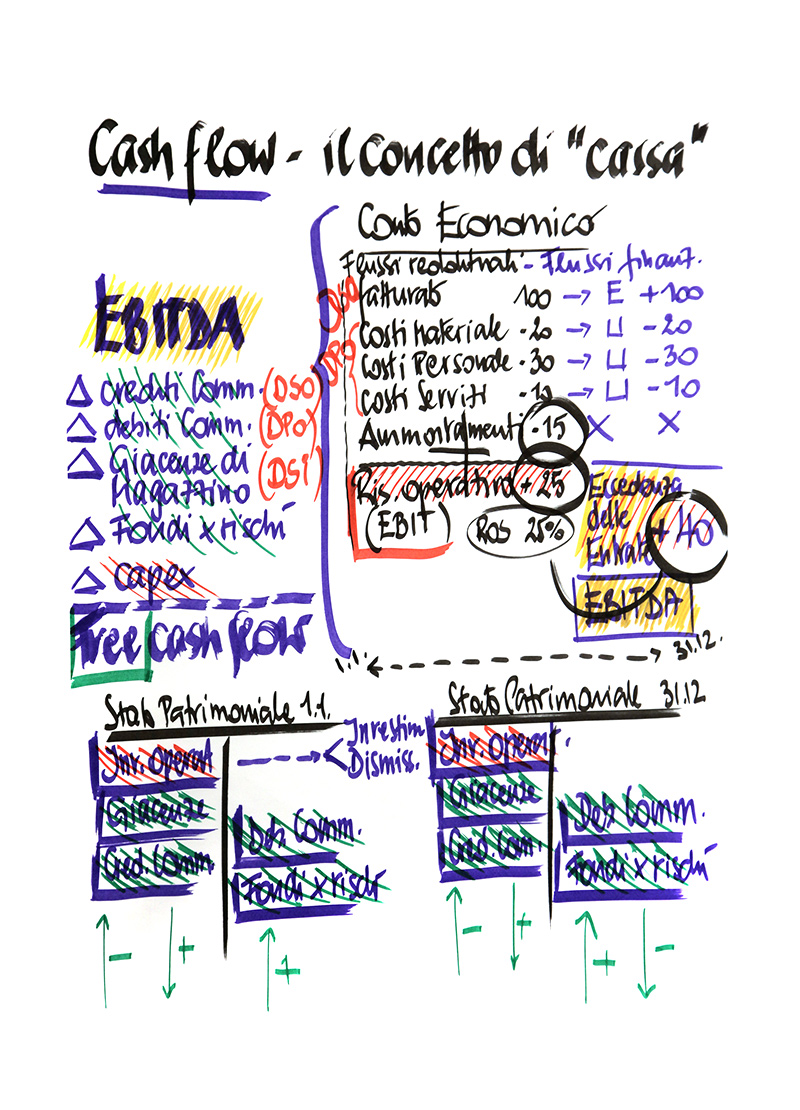 Cash flow - il concetto di "cassa"
Conto Economico
Flussi reddituali - Flussi finanz.
DSO
fatturato 100 → E +100
DPO
costi materiale -20 → U -20
costi Personale -30 → U -30
costi Servizi -10 → U -10
Ammortamenti -15 X X
Ris. operativo + 25
(EBIT)
ROS 25%
Eccedenza
delle
Entrate + 40
EBITDA
1.1. 31.12.
EBITDA
Δ crediti Comm. (DSO)
Δ debiti Comm. (DPO)
Δ Giacenze di
Magazzino (DSI)
Δ Fondi x rischi
Δ capex
Free cash flow
Stato Patrimoniale 1.1.
Inv. operat
Investim
Dismiss.
Giacenze
Cred. Comm.
Deb Comm.
Fondi x rischi
- + +
Stato Patrimoniale 31.12
Inv. operat.
Giacenze
Cred. Com.
Deb Comm.
Fondi x rischi
- + + -